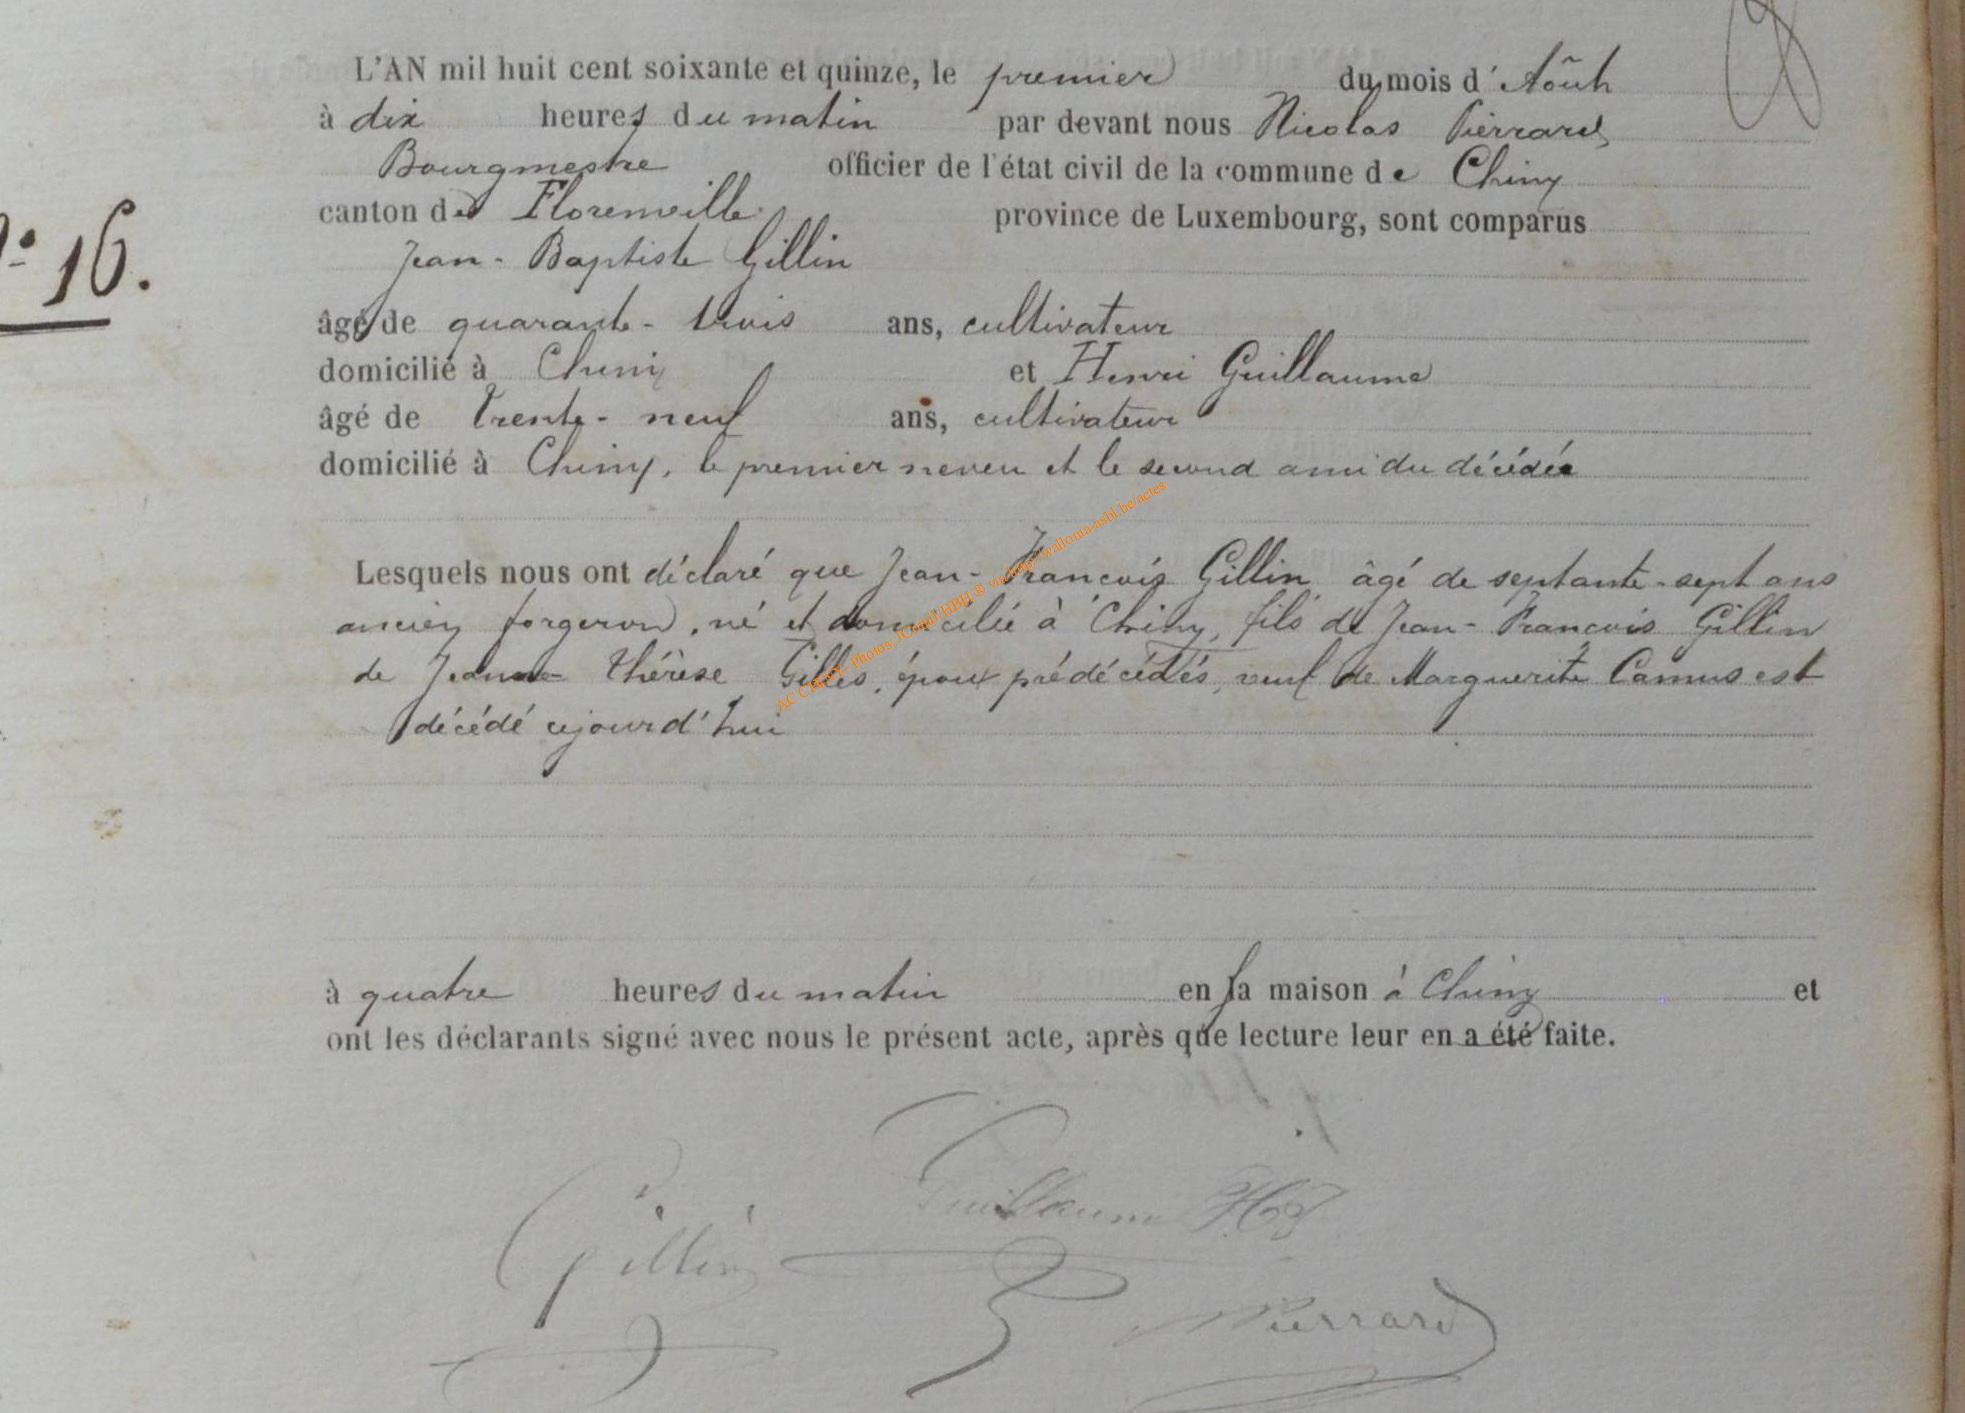 L'AN mil huit cent soixante et quinze, le premier du mois d'Aoũt
à dix heures du matin par devant nous Nicolas Pierrard
Bourgmestre officier de l'état civil de la commune de Chiny
canton de Florenville province de Luxembourg, sont comparus
N° 16.
Jean-Baptiste Gillin
âgé de quarante-trois ans, cultivateur
domicilié à Chiny et Henri Guillaume
âgé de trente-neuf ans, cultivateur
domicilié à Chiny, le premier neveu et le second ami du décédé
Lesquels nous ont déclaré que Jean-François Gillin âgé de septante-sept ans
ancien forgeron, né et domicilié à Chiny, fils de Jean-François Gillin
de Jeanne Thérèse Gilles, époux prédécédés, veuf de Marguerite Camus est
décédé cejourd'hui
à quatre heures du matin en sa maison à Chiny et
ont les déclarants signé avec nous le présent acte, après que lecture leur en a été faite.
Guillaume
Gillin
Pierrard